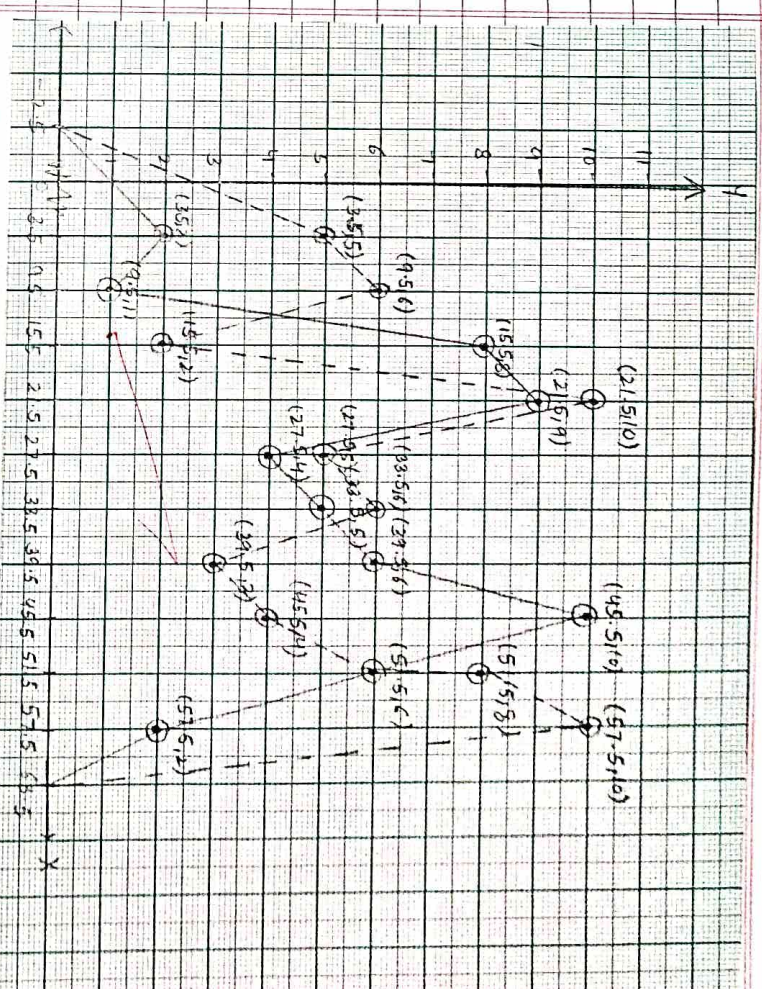 Y
11
10
9
8
7
6
5
4
3
2
1
-2.5
3.5
9.5
15.5
21.5
27.5
33.5
39.5
45.5
51.5
57.5
63.5
X
(3.5,2)
(3.5,5)
(9.5,1)
(9.5,6)
(15.5,2)
(15.5,8)
(21.5,9)
(21.5,10)
(27.5,4)
(27.5,5)
(33.5,5)
(33.5,6)
(39.5,3)
(39.5,6)
(45.5,4)
(45.5,10)
(51.5,6)
(51.5,8)
(57.5,2)
(57.5,10)